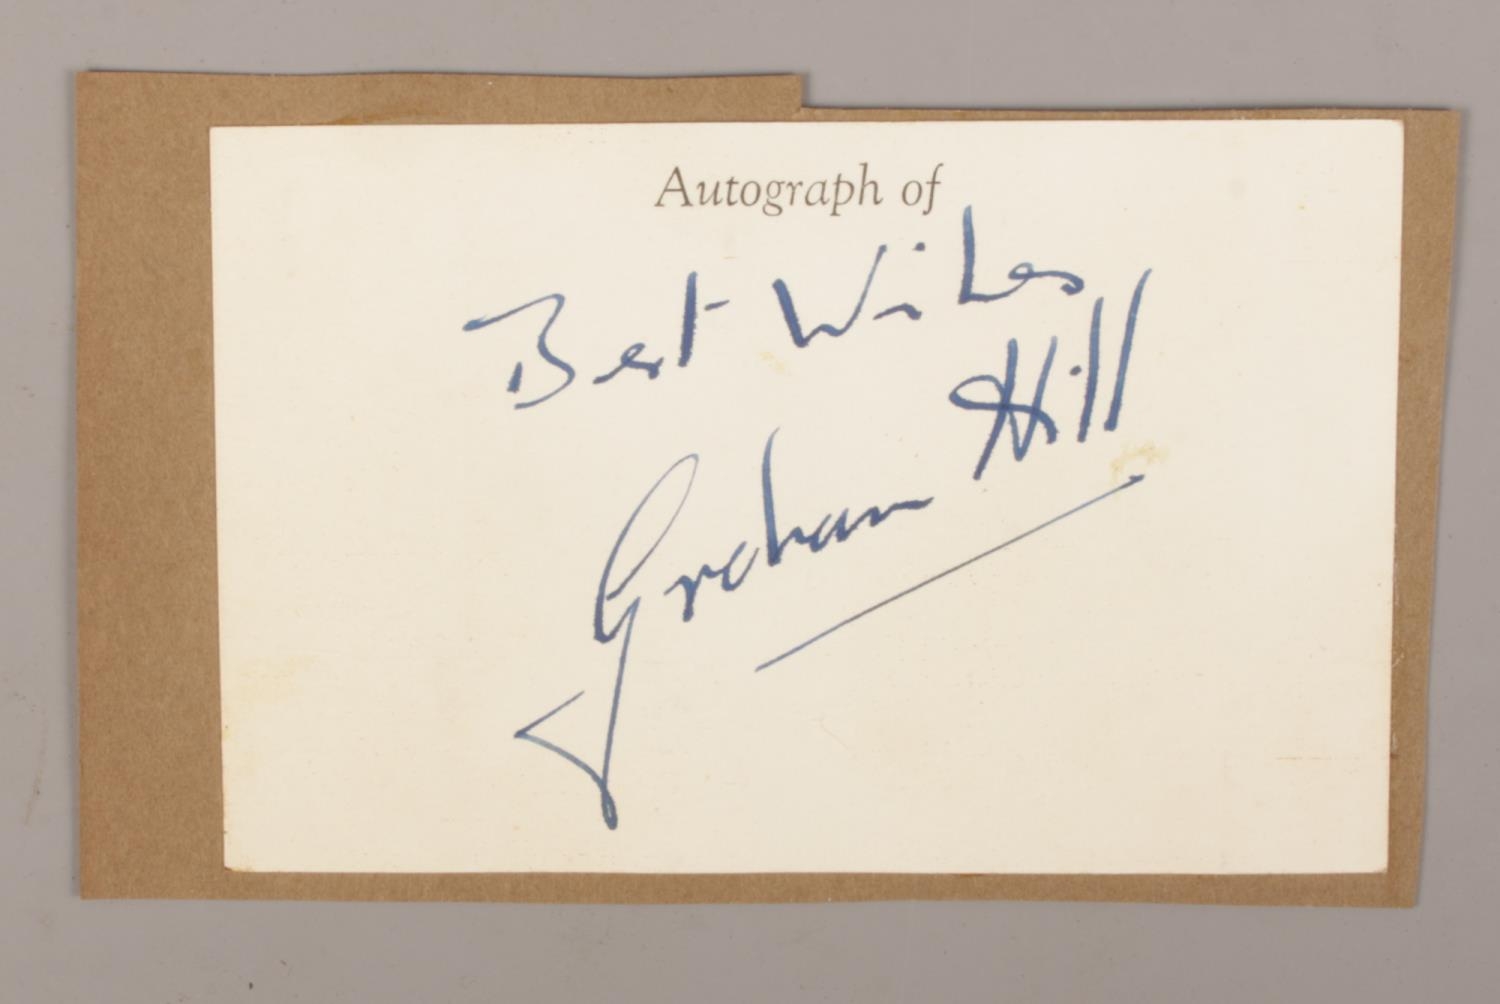 Autograph of
Best Wishes
Graham Hill